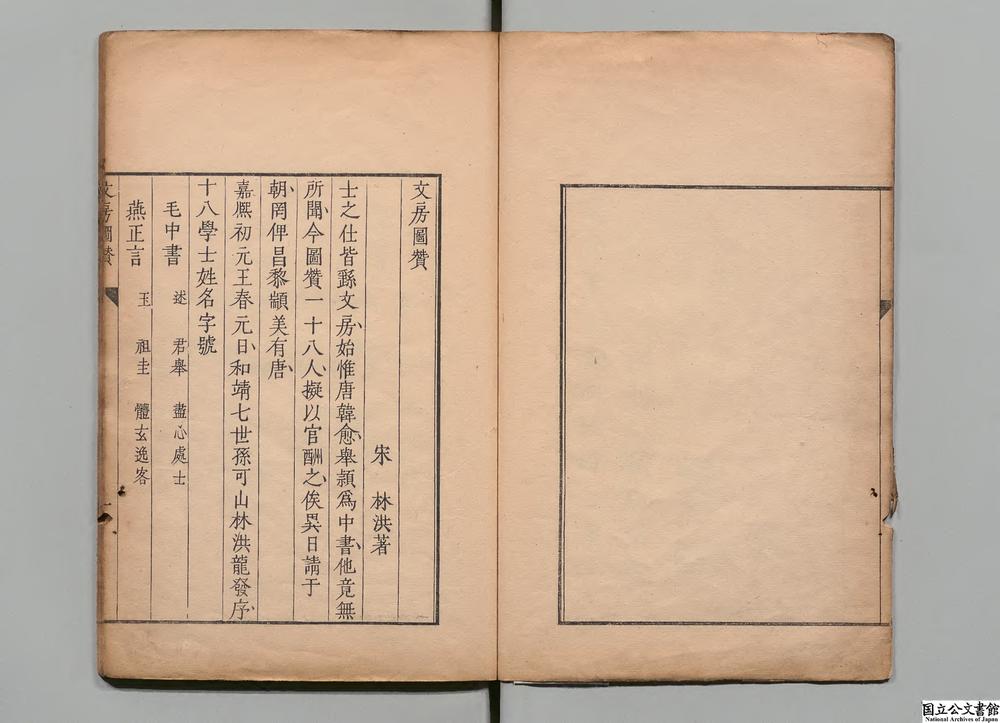 文房圖贊
宋 林洪著
士之仕皆繇文房始惟唐韓愈舉穎爲中書他竟無
所聞今圖贊一十八人擬以官酬之俟異日請于
朝罔俾昌黎顓美有唐
嘉熈初元王春元日和靖七世孫可山林洪龍發序
十八學士姓名字號
毛中書 述 君舉 盡心處士
燕正言 玉 祖圭 體玄逸客
文房圖贊 一
国立公文書館
National Archives of Japan